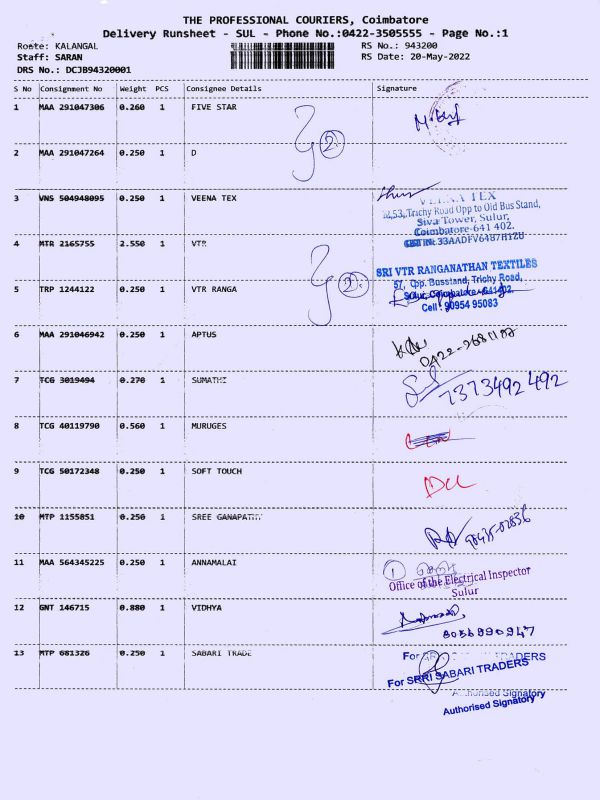 THE PROFESSIONAL COURIERS, Coimbatore
Delivery Runsheet - SUL - Phone No.:0422-3505555 - Page No.:1
Route: KALANGAL RS No.: 943200
Staff: SARAN RS Date: 20-May-2022
DRS No.: DCJB94320001
S No Consignment No Weight PCS Consignee Details Signature
1 MAA 291047306 0.260 1 FIVE STAR
2
2 MAA 291047264 0.250 1 D
3 VNS 504948095 0.250 1 VEENA TEX
VEENA TEX
Trichy Road Opp to Old Bus Stand,
Siva Tower, Sulur,
Coimbatore-641 402.
4 MTR 2165755 2.550 1 VTR
GSTIN: 33AADFV6487H1ZU
SRI VTR RANGANATHAN TEXTILES
57, Opp. Busstand, Trichy Road,
5 TRP 1244122 0.250 1 VTR RANGA
2
Sulur, Coimbatore - 641402.
Cell : 90954 95083
6 MAA 291046942 0.250 1 APTUS
7 TCG 3019494 0.270 1 SUMATHI
7373492492
8 TCG 40119790 0.560 1 MURUGES
9 TCG 50172348 0.250 1 SOFT TOUCH
10 MTP 1155851 0.250 1 SREE GANAPATHY
11 MAA 564345225 0.250 1 ANNAMALAI
1
Office of the Electrical Inspector
Sulur
12 GNT 146715 0.880 1 VIDHYA
8056890947
13 MTP 681326 0.250 1 SABARI TRADE
For SRRI SABARI TRADERS
Authorised Signatory
Authorised Signatory